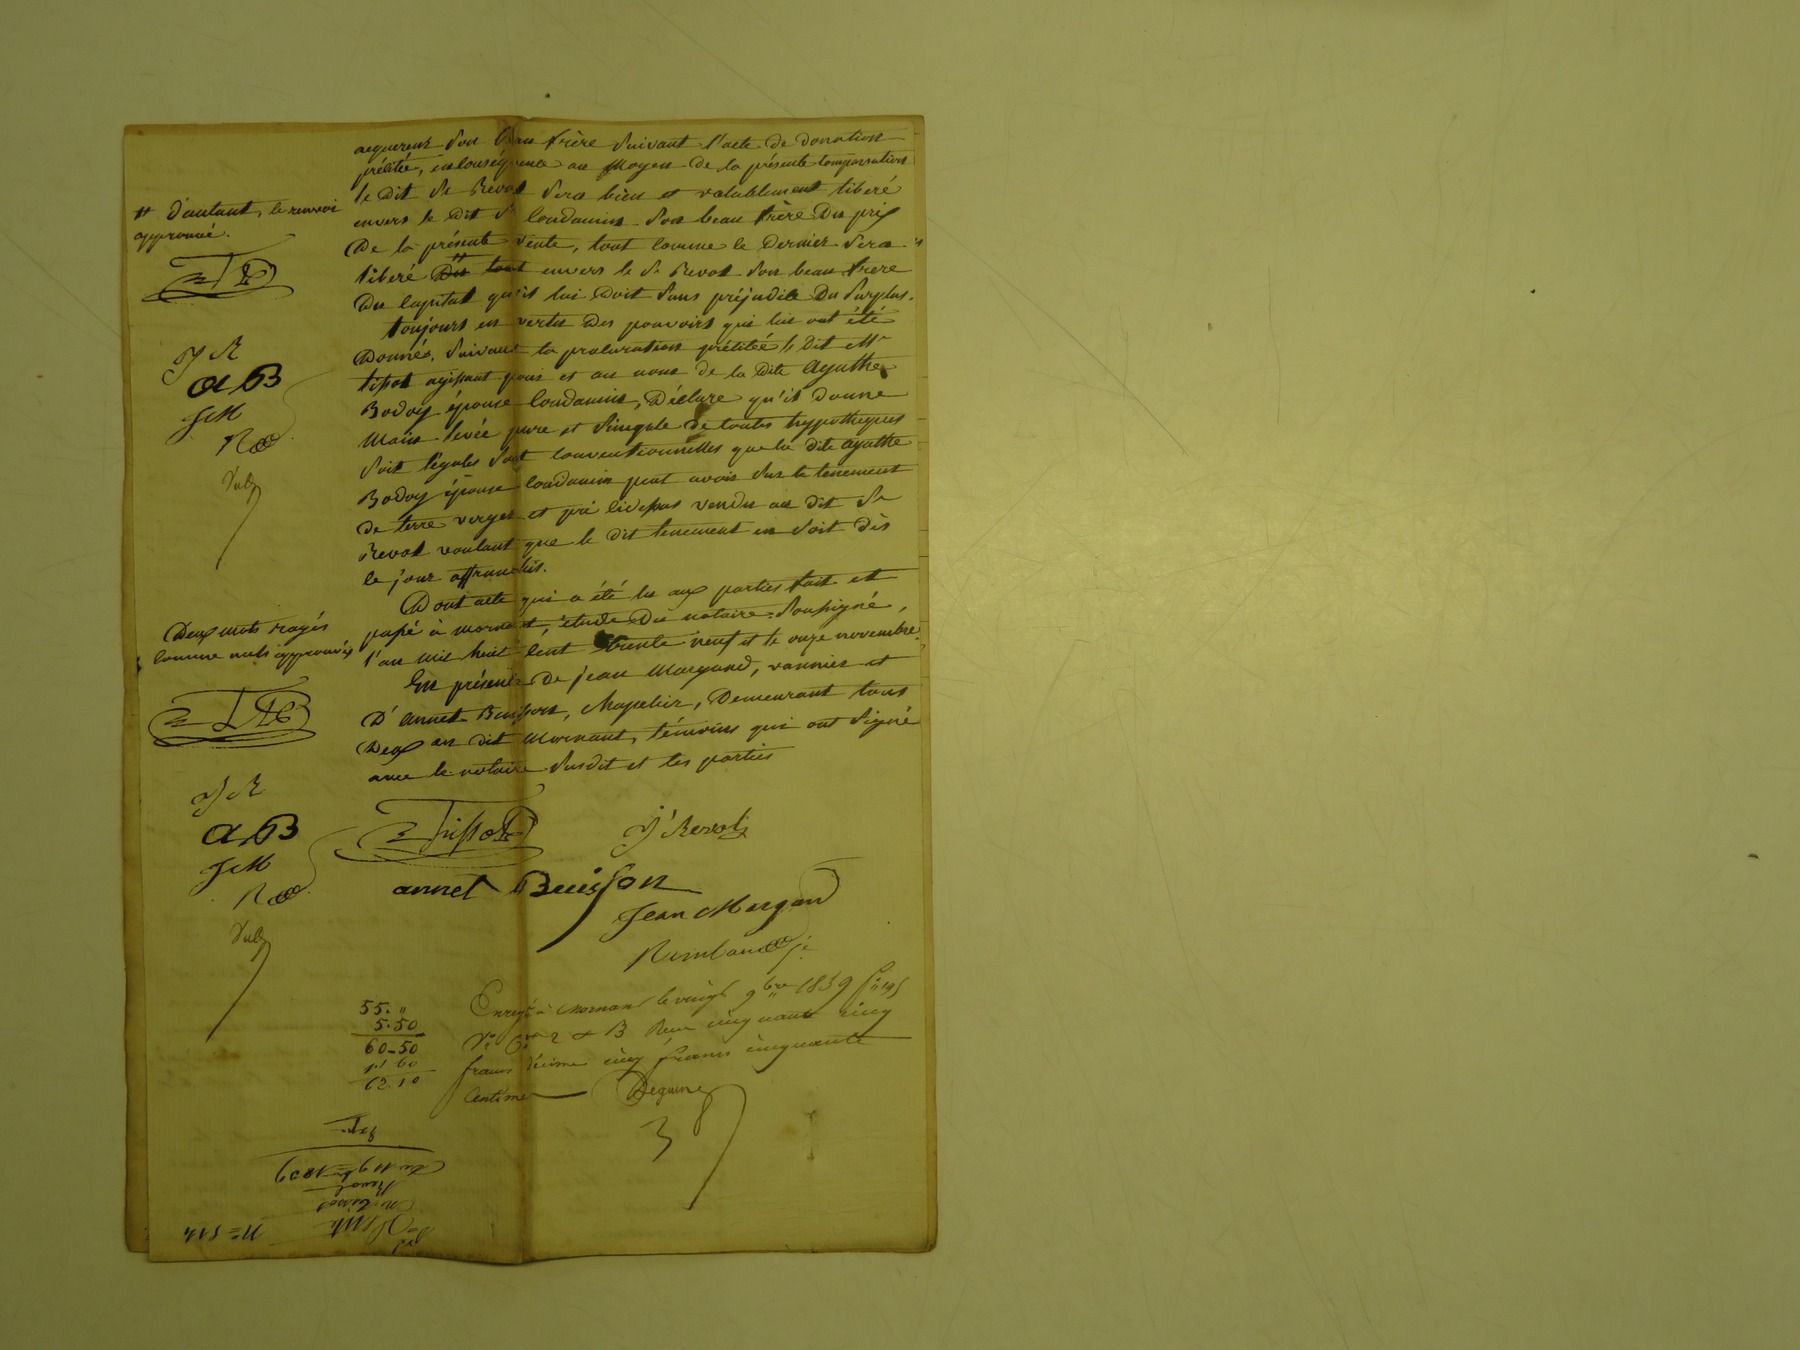 acquereur son beau frère suivant l'acte de donation
précitée, en conséquence au moyen de la présente compensation
le dit Sr Revol sera bien et valablement libéré
envers le dit Sr Condamin son beau frère du prix
De la présente vente, tout comme le dernier sera
libéré Du tout envers le Sr Revol son beau frère
Du capital qu'il lui doit sans préjudice Du surplus.
toujours en vertu Des pouvoirs qui lui ont été
Donnés, suivant la procuration précitée le dit Mr
tissot agissant pour et au nom de la dite Agathe
Bodoy épouse Condamin, Déclare qu'il donne
main-levée pure et simple de toutes hypotheques
soit légales soit conventionnelles que la dite agathe
Bodoy épouse Condamin peut avoir sur le tenement
de terre verger et pré ci dessus vendu au dit Sr
Revol voulant que le dit tenement en soit dès
ce jour affranchis.
Dont acte qui a été lu aux parties fait et
passé à mornant, étude du notaire soussigné,
l'an mil huit cent trente neuf et le onze novembre.
En présence de jean Margand, vannier et
D'annet Buisson, chapelier, Demeurant tous
Deux au dit mornant, témoins qui ont signé
avec le notaire susdit et les parties
# d'autant, le renvoi
approuvé.
JR
aB
JM
Deux mots rayés
comme nuls approuvés
JR
aB
JM
Tissot
J Revol
annet Buisson
Jean Margand
55. "
5.50
60-50
1 60
62.10
Enregé à Mornant le vingt 9bre 1839
Reçu cinquante cinq
francs Décime cinq francs cinquante
Centimes
3
Du 11 9bre 1839
Revol
Tissot
Vente
N° 514